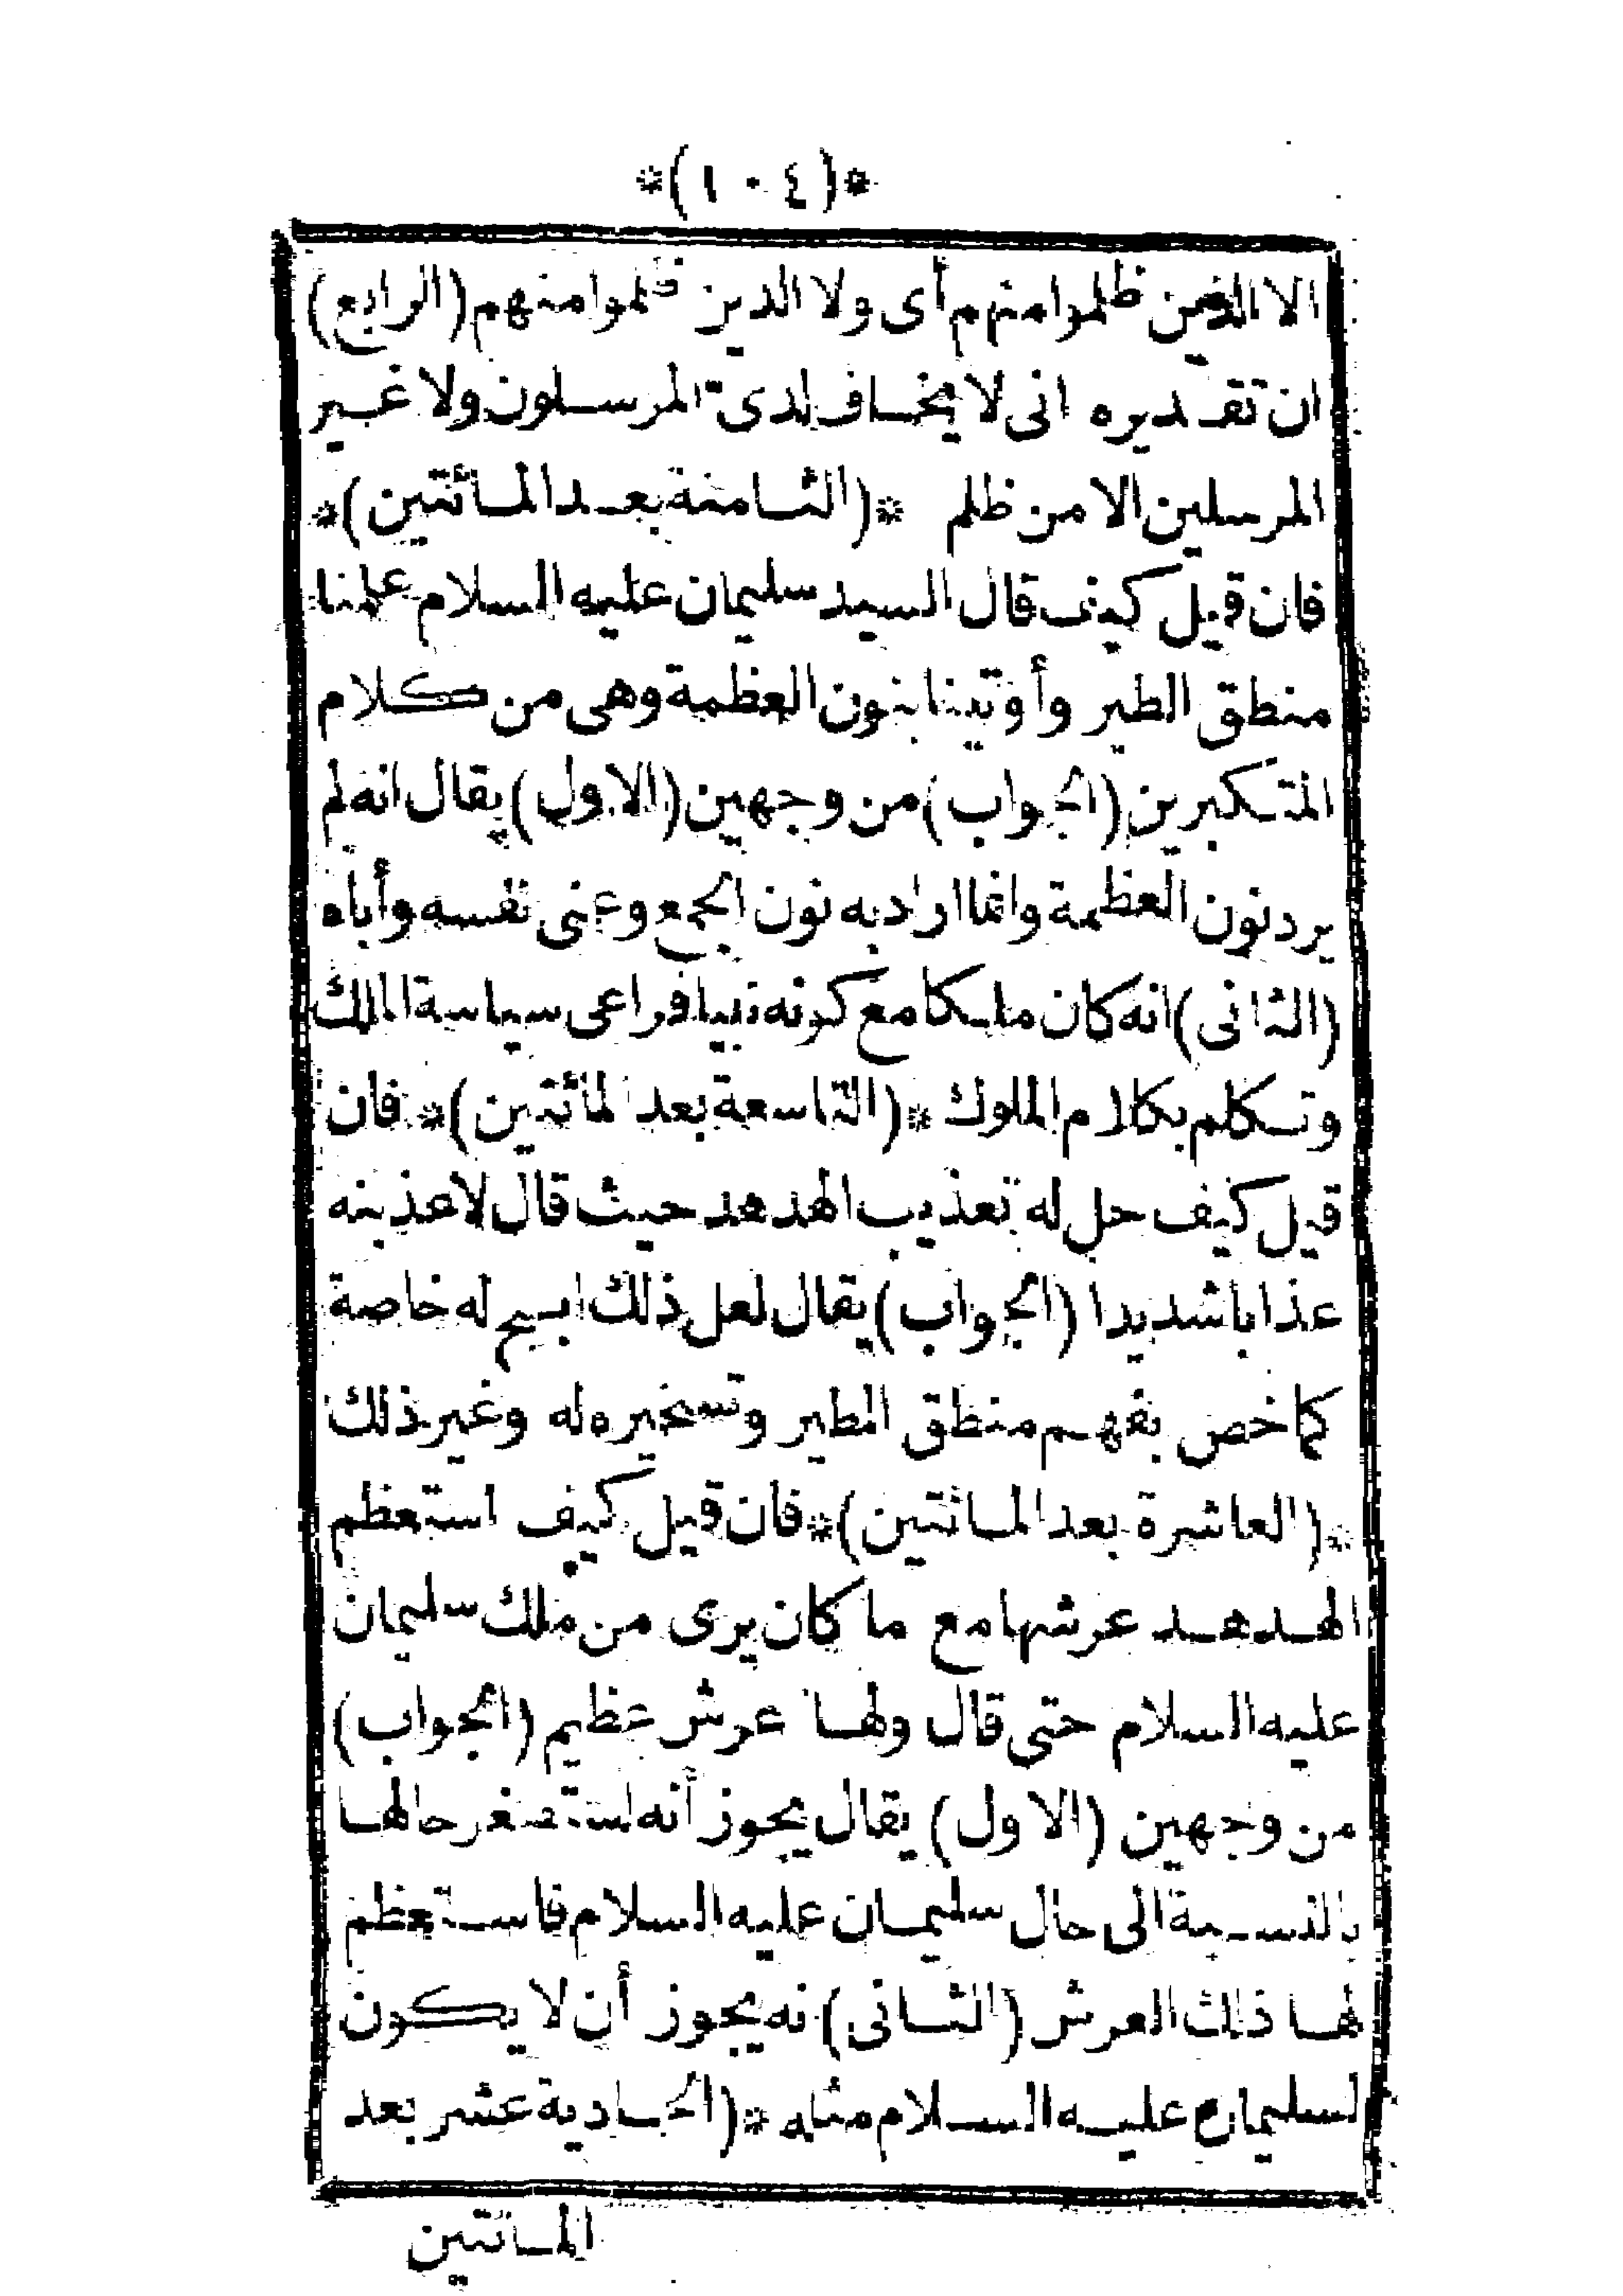 *(١٠٤)*
الا الذين ظلموا منهم أى ولا الذين ظلموا منهم (الرابع)
ان تقديره انى لا يخاف لدى المرسلون ولا غير
المرسلين الا من ظلم *(الثامنة بعد المائتين)*
فان قيل كيف قال السيد سليمان عليه السلام علمنا
منطق الطير وأوتينا بنون العظمة وهى من كلام
المتكبرين (الجواب) من وجهين (الاول) يقال انه لم
يرد نون العظمة وانما اراد به نون الجمع وعنى نفسه وأباه
(الثانى) انه كان ملكا مع كونه نبيا فراعى سياسة الملك
وتكلم بكلام الملوك *(التاسعة بعد المائتين)* فان
قيل كيف حل له تعذيب الهدهد حيث قال لاعذبنه
عذابا شديدا (الجواب) يقال لعل ذلك ابيح له خاصة
كما خص بفهم منطق الطير وتسخيره له وغير ذلك
*(العاشرة بعد المائتين)* فان قيل كيف استعظم
الهدهد عرشها مع ما كان يرى من ملك سليمان
عليه السلام حتى قال ولها عرش عظيم (الجواب)
من وجهين (الاول) يقال يجوز أنه استصغر حالها
بالنسبة الى حال سليمان عليه السلام فاستعظم
لها ذلك العرش (الثانى) انه يجوز أن لا يكون
لسليمان عليه السلام مثله *(الحادية عشر بعد
المائتين